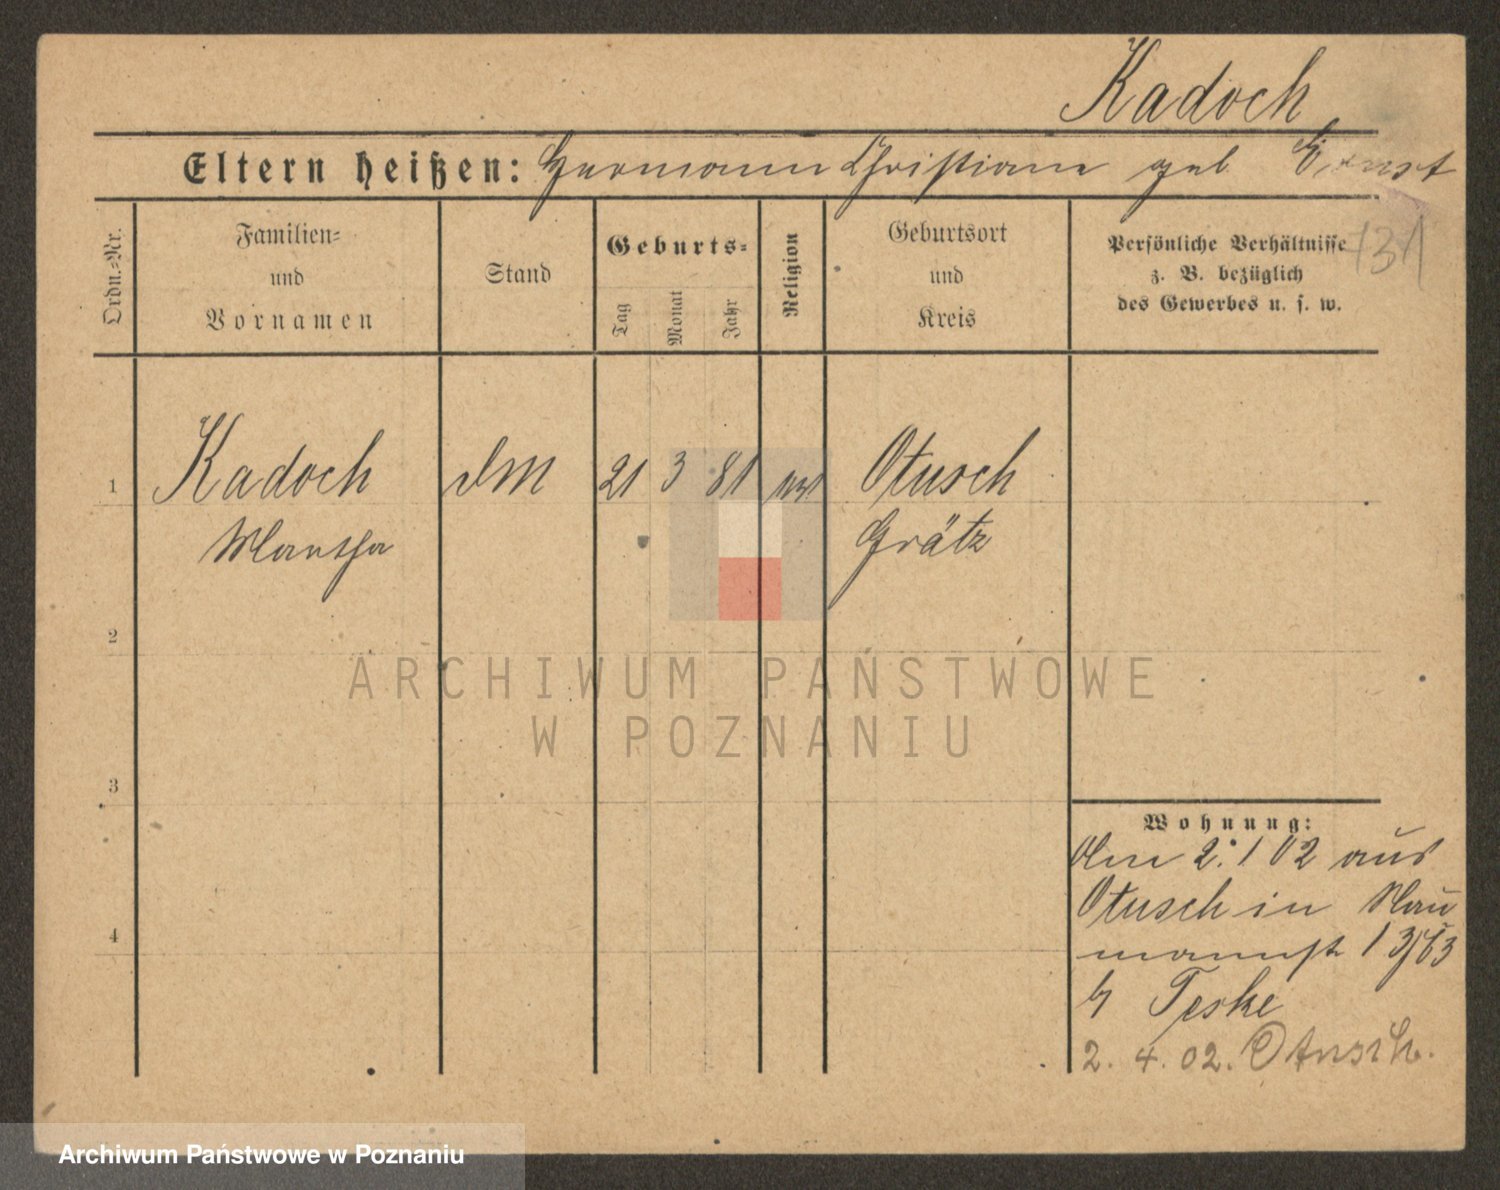 Kadoch
Eltern heißen: Hermann Christiane geb Ernst
131
Ordn.=Nr.
Familien=
und
Vornamen
Stand
Geburts=
Tag
Monat
Jahr
Religion
Geburtsort
und
Kreis
Persönliche Verhältnisse
z. B. bezüglich
des Gewerbes u. s. w.
1
Kadoch
Martha
DM
21 3 81
Otusch
Grätz
2
3
4
Wohnung:
Am 2. 1 02 aus
Otusch in Nau
mannst 13/
b Teske
2. 4. 02. Otusch.
ARCHIWUM PAŃSTWOWE
W POZNANIU
Archiwum Państwowe w Poznaniu